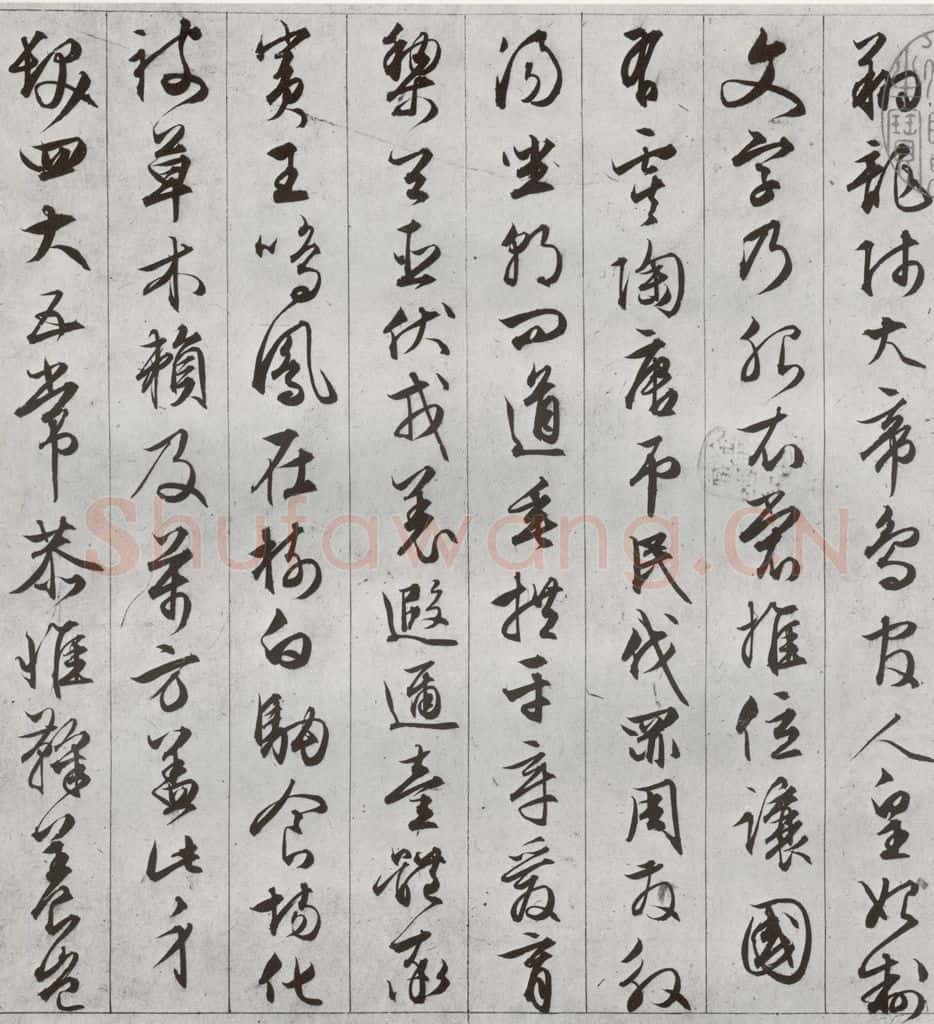 翔龍師火帝鳥官人皇始制
文字乃服衣裳推位讓國
有虞陶唐弔民伐罪周發殷
湯坐朝問道垂拱平章愛育
黎首臣伏戎羌遐邇壹體率
賓王鳴鳳在樹白駒食場化
被草木賴及萬方蓋此身
髮四大五常恭惟鞠養豈
Shufawang.CN